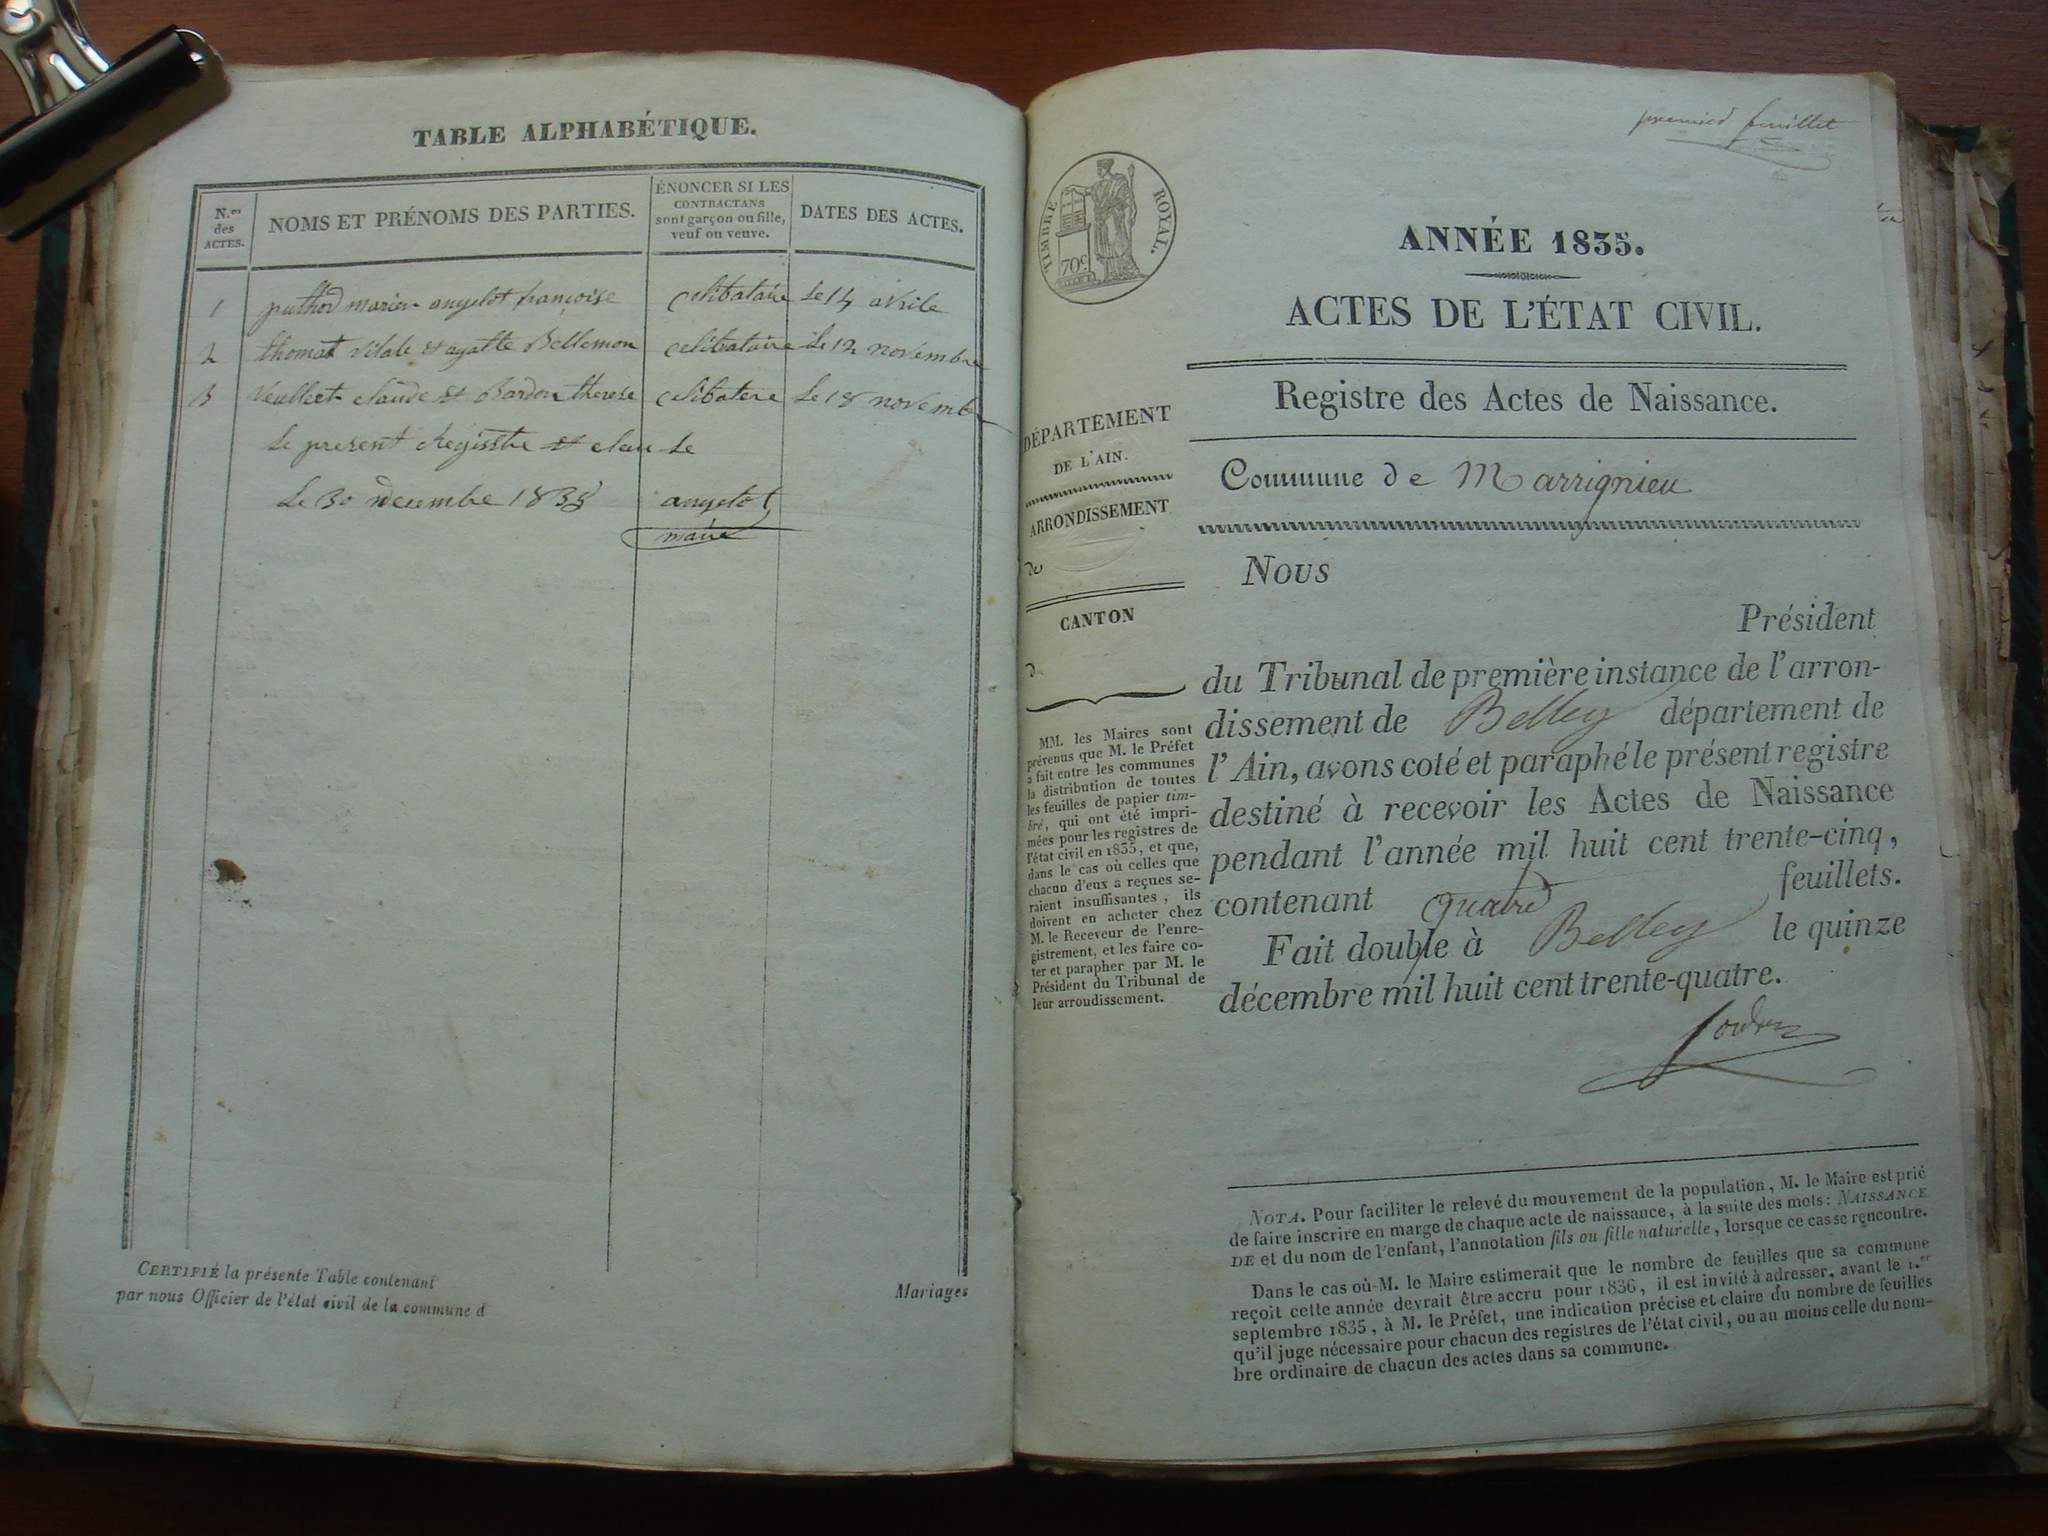 TABLE ALPHABÉTIQUE.
N.os des ACTES.
NOMS ET PRÉNOMS DES PARTIES.
ÉNONCER SI LES
CONTRACTANS
sont garçon ou fille,
veuf ou veuve.
DATES DES ACTES.
1 puthod marier angelot françoise celibataire Le 14 avrile
2 thomat vitale et agatte Bellemon celibataire Le 12 novembre
3 Veullet claude et Bardon therese celibatere Le 18 novemb
Le present Regisstre et clau Le
Le 30 decembre 1835 angelot
maire
CERTIFIÉ la présente Table contenant
par nous Officier de l'état civil de la commune d
Mariages
premier feuillet
TIMBRE ROYAL.
70c
ANNÉE 1835.
ACTES DE L'ÉTAT CIVIL.
Registre des Actes de Naissance.
Commune de Marrignieu
DÉPARTEMENT
DE L'AIN.
ARRONDISSEMENT
de
CANTON
d
MM. les Maires sont
prévenus que M. le Préfet
a fait entre les communes
la distribution de toutes
les feuilles de papier tim-
bré, qui ont été impri-
mées pour les registres de
l'état civil en 1835, et que,
dans le cas où celles que
chacun d'eux a reçues se-
raient insuffisantes, ils
doivent en acheter chez
M. le Receveur de l'enre-
gistrement, et les faire co-
ter et parapher par M. le
Président du Tribunal de
leur arroudissement.
Nous
Président
du Tribunal de première instance de l'arron-
dissement de Belley département de
l'Ain, avons coté et paraphé le présent registre
destiné à recevoir les Actes de Naissance
pendant l'année mil huit cent trente-cinq,
contenant quatre feuillets.
Fait double à Belley le quinze
décembre mil huit cent trente-quatre.
NOTA. Pour faciliter le relevé du mouvement de la population, M. le Maire est prié
de faire inscrire en marge de chaque acte de naissance, à la suite des mots: NAISSANCE
DE et du nom de l'enfant, l'annotation fils ou fille naturelle, lorsque ce cas se rencontre.
Dans le cas où M. le Maire estimerait que le nombre de feuilles que sa commune
reçoit cette année devrait être accru pour 1836, il est invité à adresser, avant le 1.er
septembre 1835, à M. le Préfet, une indication précise et claire du nombre de feuilles
qu'il juge nécessaire pour chacun des registres de l'état civil, ou au moins celle du nom-
bre ordinaire de chacun des actes dans sa commune.